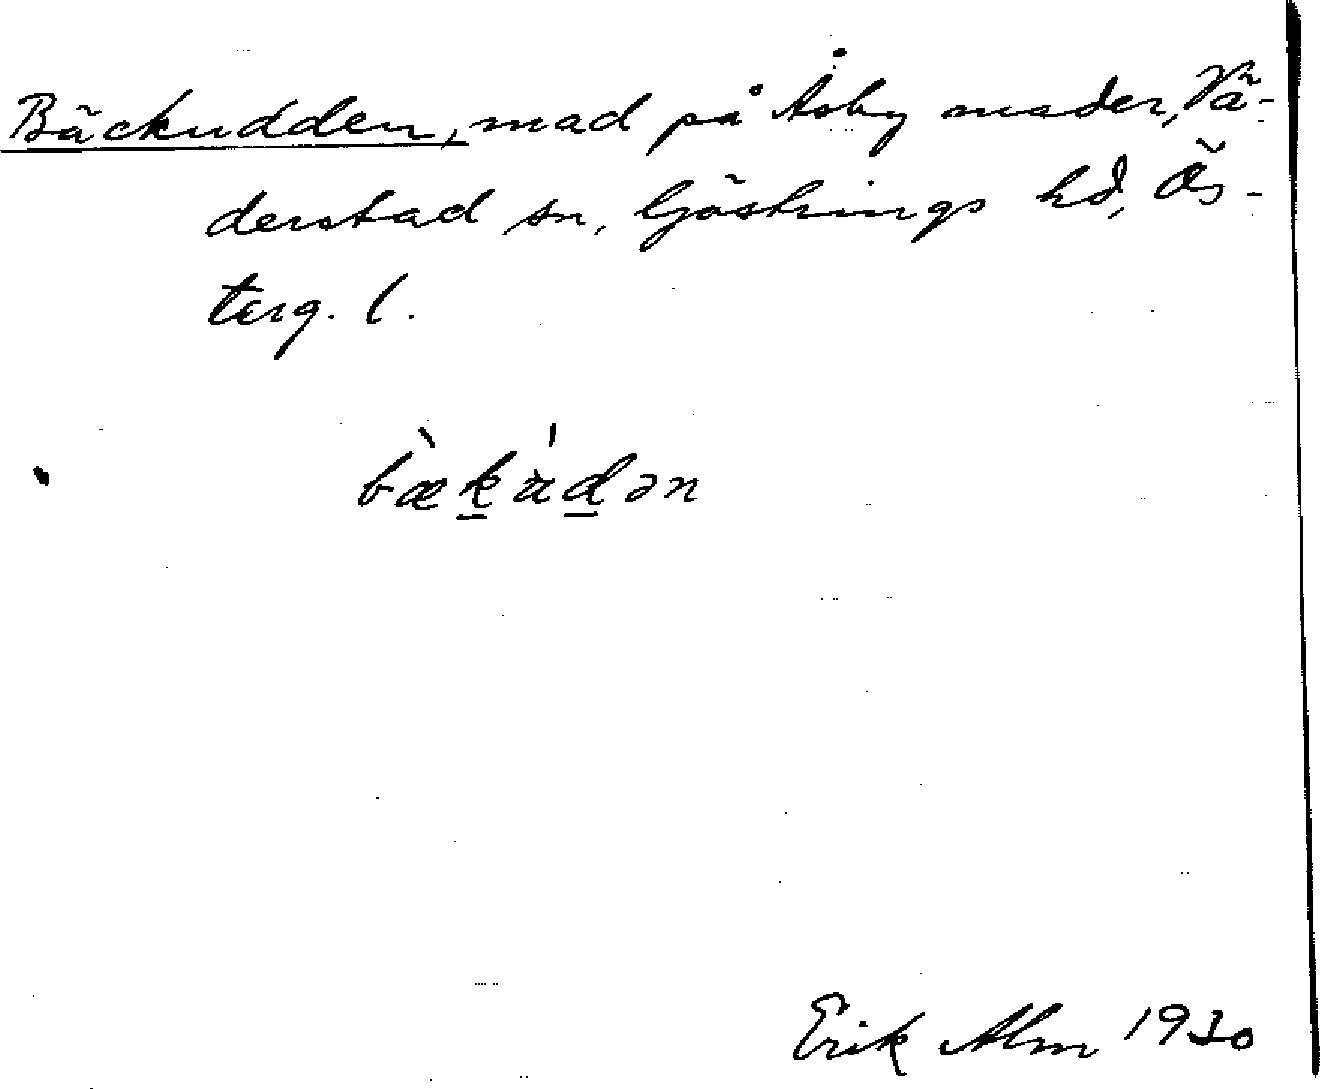 Bäckudden, mad på Åsby mader, Vä-
derstad sn, Göstrings hd, Ös-
terg. l.
bæ̀k̲ẁd̲ən
Erik Alm 1930